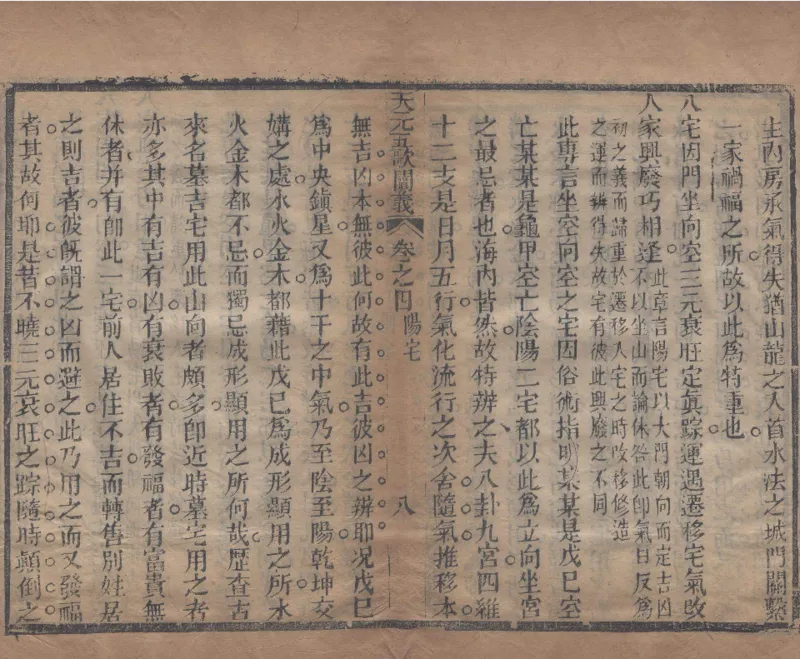 主內房承氣得失猶山龍之入首水法之城門關繫
一家禍福之所故以此爲特重也
八宅因門坐向空三元衰旺定真踪運遇遷移宅氣改
人家興廢巧相逢此章言陽宅以大門朝向而定吉凶
不以坐山而論休咎此卽氣口反爲
初之義而誠重於遷移入宅之時改移修造
之運而辨得失故宅有彼此興廢之不同
此專言坐空向空之宅因俗術指明某某是戊巳空
亡某某是龜甲空亡陰陽二宅都以此爲立向坐宮
之最忌者也海內皆然故特辨之夫八卦九宮四維
十二支是日月五行氣化流行之次舍隨氣推移本
天元五歌闡義 卷之四 陽宅 八
無吉凶本無彼此何故有此吉彼凶之辨耶况戊巳
爲中央鎮星又爲十干之中氣乃至陰至陽乾坤交
媾之處水火金木都藉此戊巳爲成形顯用之所水
火金木都不忌而獨忌成形顯用之所何哉歷查古
來名墓吉宅用此山向者頗多卽近時墓宅用之者
亦多其中有吉有凶有衰敗者有發福者有富貴無
休者并有卽此一宅前人居住不吉而轉售別姓居
之則吉者彼旣謂之凶而避之此乃用之而又發福
者其故何耶是昔不曉三元衰旺之踪隨時顛倒之